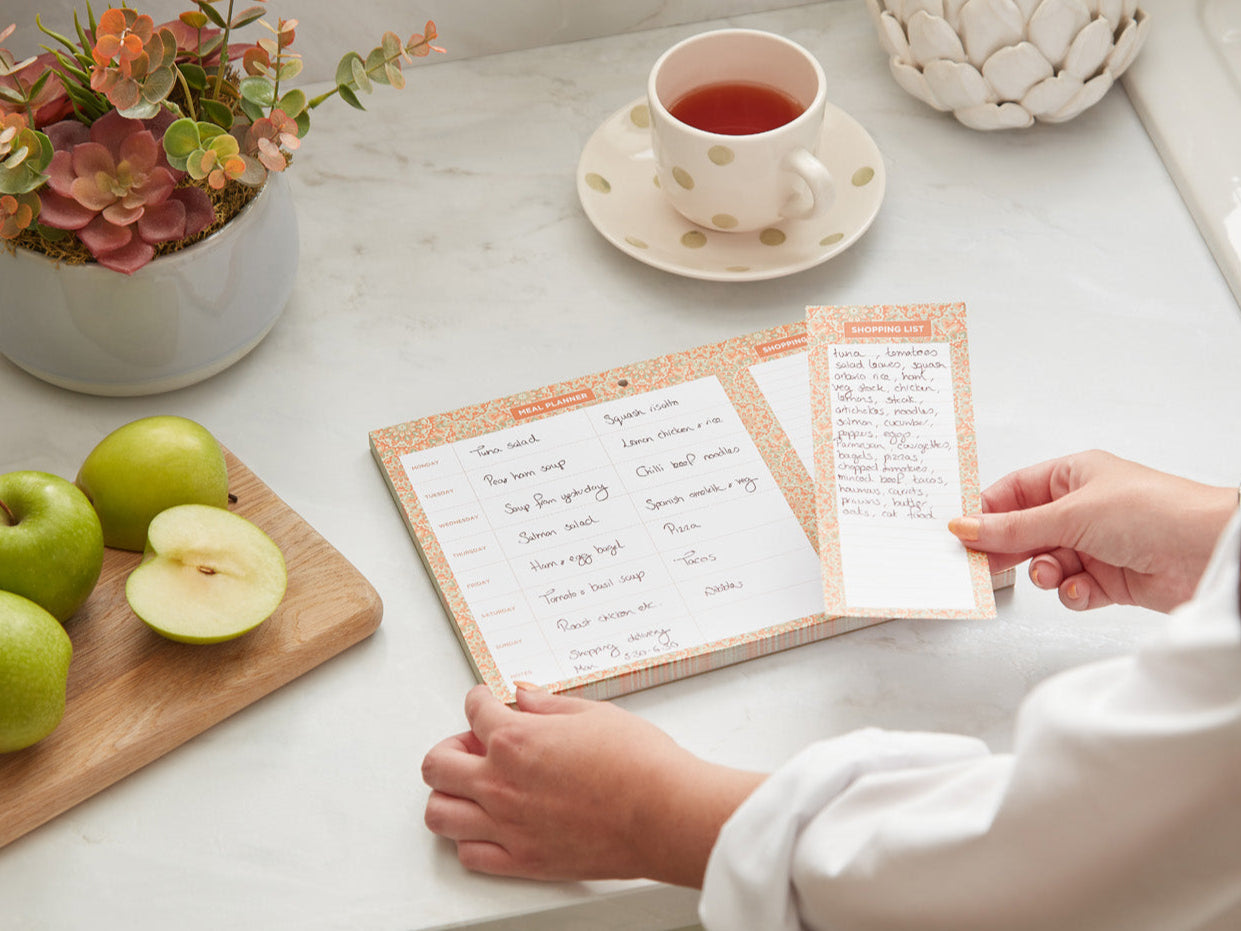 MEAL PLANNER
MONDAY Tuna salad Squash risotto
TUESDAY Pea + ham soup Lemon chicken + rice
WEDNESDAY Soup from yesterday Chilli beef noodles
THURSDAY Salmon salad Spanish omelette + veg
FRIDAY Ham + egg bagel Pizza
SATURDAY Tomato + basil soup Tacos
SUNDAY Roast chicken etc. Nibbles
NOTES Shopping delivery
Mon 5:30-6:30
SHOPPING
SHOPPING LIST
tuna, tomatoes
salad leaves, squash
arborio rice, ham,
veg stock, chicken,
lemons, steak,
artichokes, noodles,
salmon, cucumber,
peppers, eggs,
parmesan, courgettes,
bagels, pizzas,
chopped tomatoes,
minced beef, tacos,
houmous, carrots,
prawns, butter,
oats, cat food